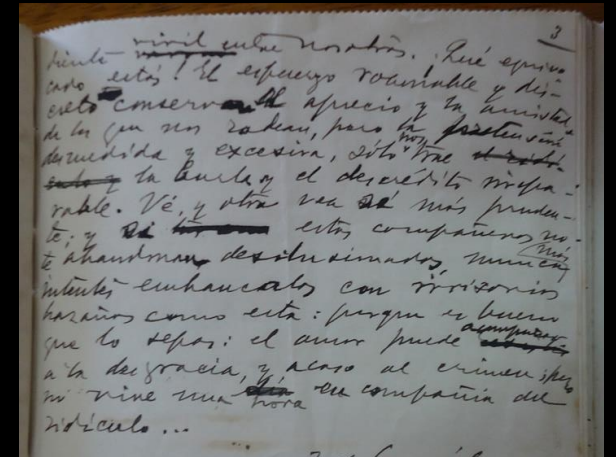 3
diente viril entre nosotros. ¡Qué equivo
cado estás! El esfuerzo razonable y dis-
creto conserva el aprecio y la amistad
de los que nos rodean, pero la pretensión
desmedida y excesiva, sólo nos trae
y la burla y el descrédito irrepa-
rable. Vé, y otra vez sé más pruden-
te; y si estos compañeros no
te abandonan desilusionados nunca más
intentes embaucarlos con irrisorias
hazañas como esta: porque es bueno
que lo sepas: el amor puede acompañar
a la desgracia, y acaso al crimen; pero
ni vive una hora en compañía del
ridículo...